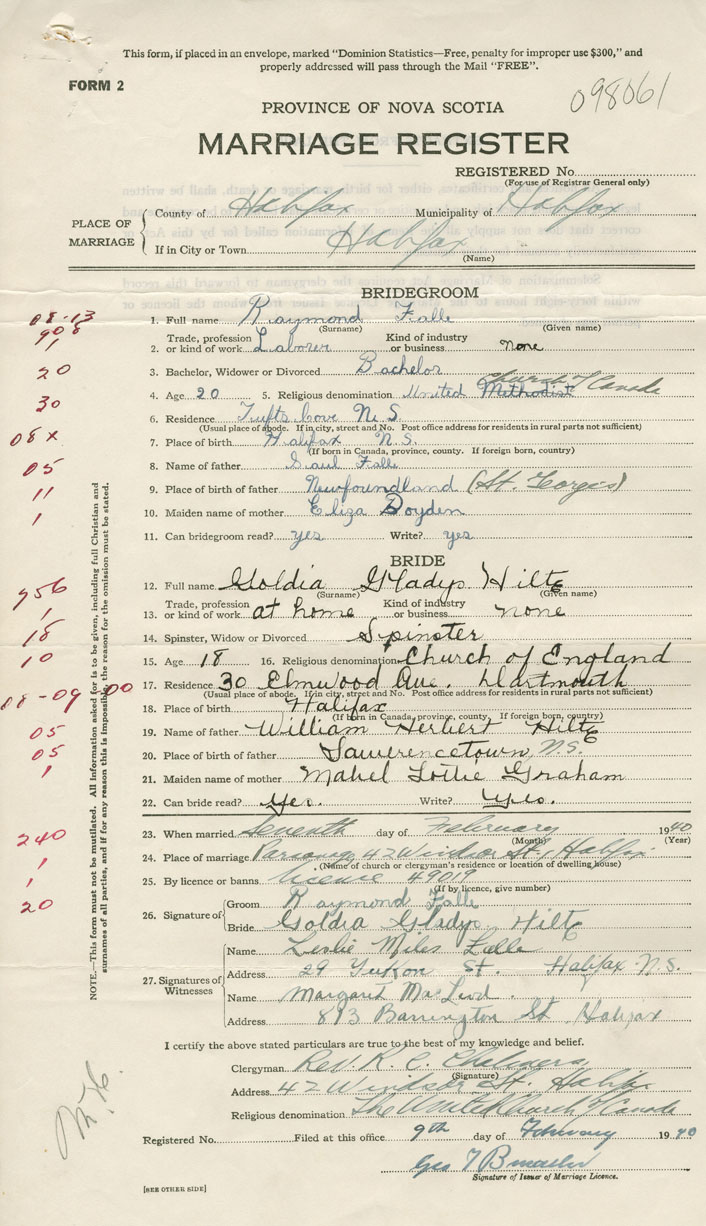 This form, if placed in an envelope, marked "Dominion Statistics—Free, penalty for improper use $300," and
properly addressed will pass through the Mail "FREE".
FORM 2
098061
PROVINCE OF NOVA SCOTIA
MARRIAGE REGISTER
REGISTERED No.
(For use of Registrar General only)
PLACE OF MARRIAGE
County of Halifax Municipality of Halifax
If in City or Town Halifax
(Name)
BRIDEGROOM
08-13
1. Full name Raymond Falle
(Surname) (Given name)
908
1
2. Trade, profession or kind of work Laborer Kind of industry or business none
20
3. Bachelor, Widower or Divorced Bachelor
4. Age 20 5. Religious denomination United Methodist Church of Canada
30
6. Residence Tufts Cove N.S.
(Usual place of abode. If in city, street and No. Post office address for residents in rural parts not sufficient)
08 x
7. Place of birth Halifax N.S.
(If born in Canada, province, county. If foreign born, country)
05
8. Name of father Falle
11
9. Place of birth of father Newfoundland (St. Georges)
1
10. Maiden name of mother Eliza
11. Can bridegroom read? yes Write? yes
BRIDE
956
12. Full name Goldia Gladys Hilts
(Surname) (Given name)
1
13. Trade, profession or kind of work at home Kind of industry or business none
18
14. Spinster, Widow or Divorced Spinster
10
15. Age 18 16. Religious denomination Church of England
08-09 00
17. Residence 30 Elmwood Ave. Dartmouth
(Usual place of abode. If in city, street and No. Post office address for residents in rural parts not sufficient)
18. Place of birth Halifax
(If born in Canada, province, county. If foreign born, country)
05
19. Name of father William Herbert Hilts
05
20. Place of birth of father Lawrencetown, N.S.
1
21. Maiden name of mother Mabel Graham
22. Can bride read? Yes. Write? Yes.
240
23. When married Seventh day of February 1940
(Month) (Year)
1
24. Place of marriage Parsonage 42 Windsor St., Halifax
(Name of church or clergyman's residence or location of dwelling house)
1
25. By licence or banns licence 49019
(If by licence, give number)
20
26. Signature of
Groom Raymond Falle
Bride Goldia Gladys Hilts
27. Signatures of Witnesses
Name Leslie Miles Falle
Address 29 Yukon St. Halifax N.S.
Name Margaret MacLeod.
Address 813 Barrington St Halifax
NOTE.—This form must not be mutilated. All information asked for is to be given, including full Christian and
surnames of all parties, and if for any reason this is impossible the reason for the omission must be stated.
I certify the above stated particulars are true to the best of my knowledge and belief.
Clergyman Rev. K. C.
(Signature)
Address 42 Windsor St. Halifax
Religious denomination The United Church of Canada
Registered No. Filed at this office 9th day of February 1940
Geo T
Signature of Issuer of Marriage Licence.
[SEE OTHER SIDE]